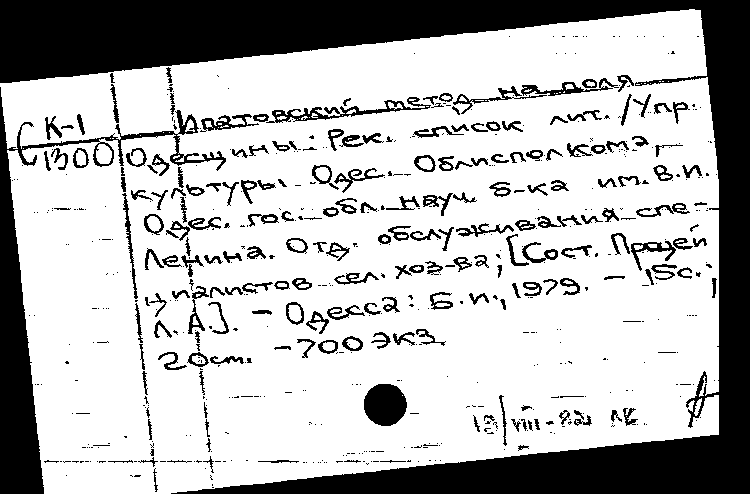 К-1
1300
Ипатовский метод на поля
Одесщины: Рек. список лит. /Упр.
культуры Одес. Облисполкома,
Одес. гос. обл. науч. б-ка им. В.И.
Ленина. Отд. обслуживания спе-
циалистов сел. хоз-ва; [Сост. Процей
Л.А.]. – Одесса: Б.и., 1979. – 15с.;
20см. – 700 экз.
VIII-82